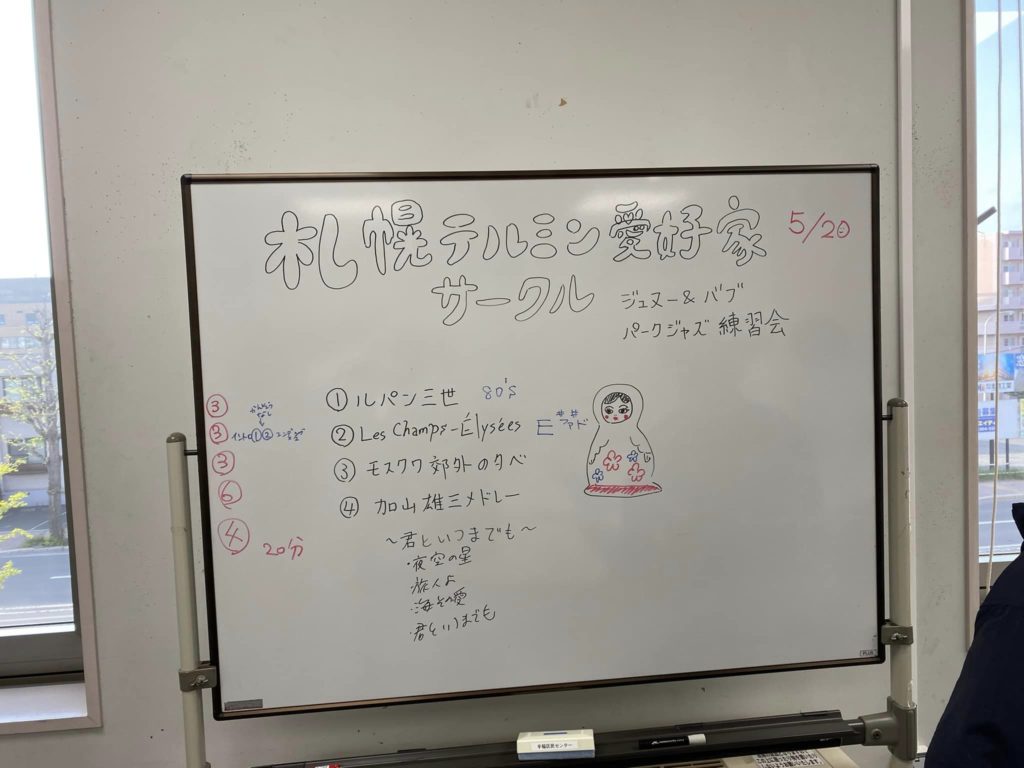 札幌テルミン愛好家
5/20
サークル
ジュヌー&バブ
パークジャズ練習会
③
① ルパン三世 80's
③
かんそう
なし
イントロ①② エンディング
② Les Champs-Élysées E
ファ#ド#
③
③ モスクワ郊外の夕べ
⑥
④ 加山雄三メドレー
④ 20分
〜君といつまでも〜
・夜空の星
・旅人よ
・海その愛
・君といつまでも
PLUS